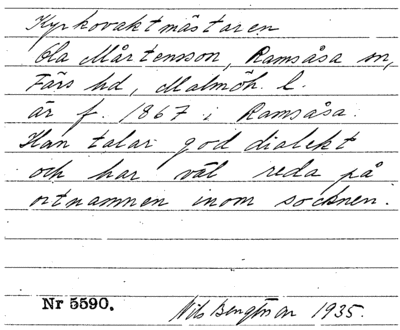 Kyrkovaktmästaren
Ola Mårtensson, Ramsåsa sn,
Färs hd, Malmöh. l.
är f. 1867 i Ramsåsa.
Han talar god dialekt
och har väl reda på
ortnamnen inom socknen.
Nr 5590. Nils Bengtsson 1935.